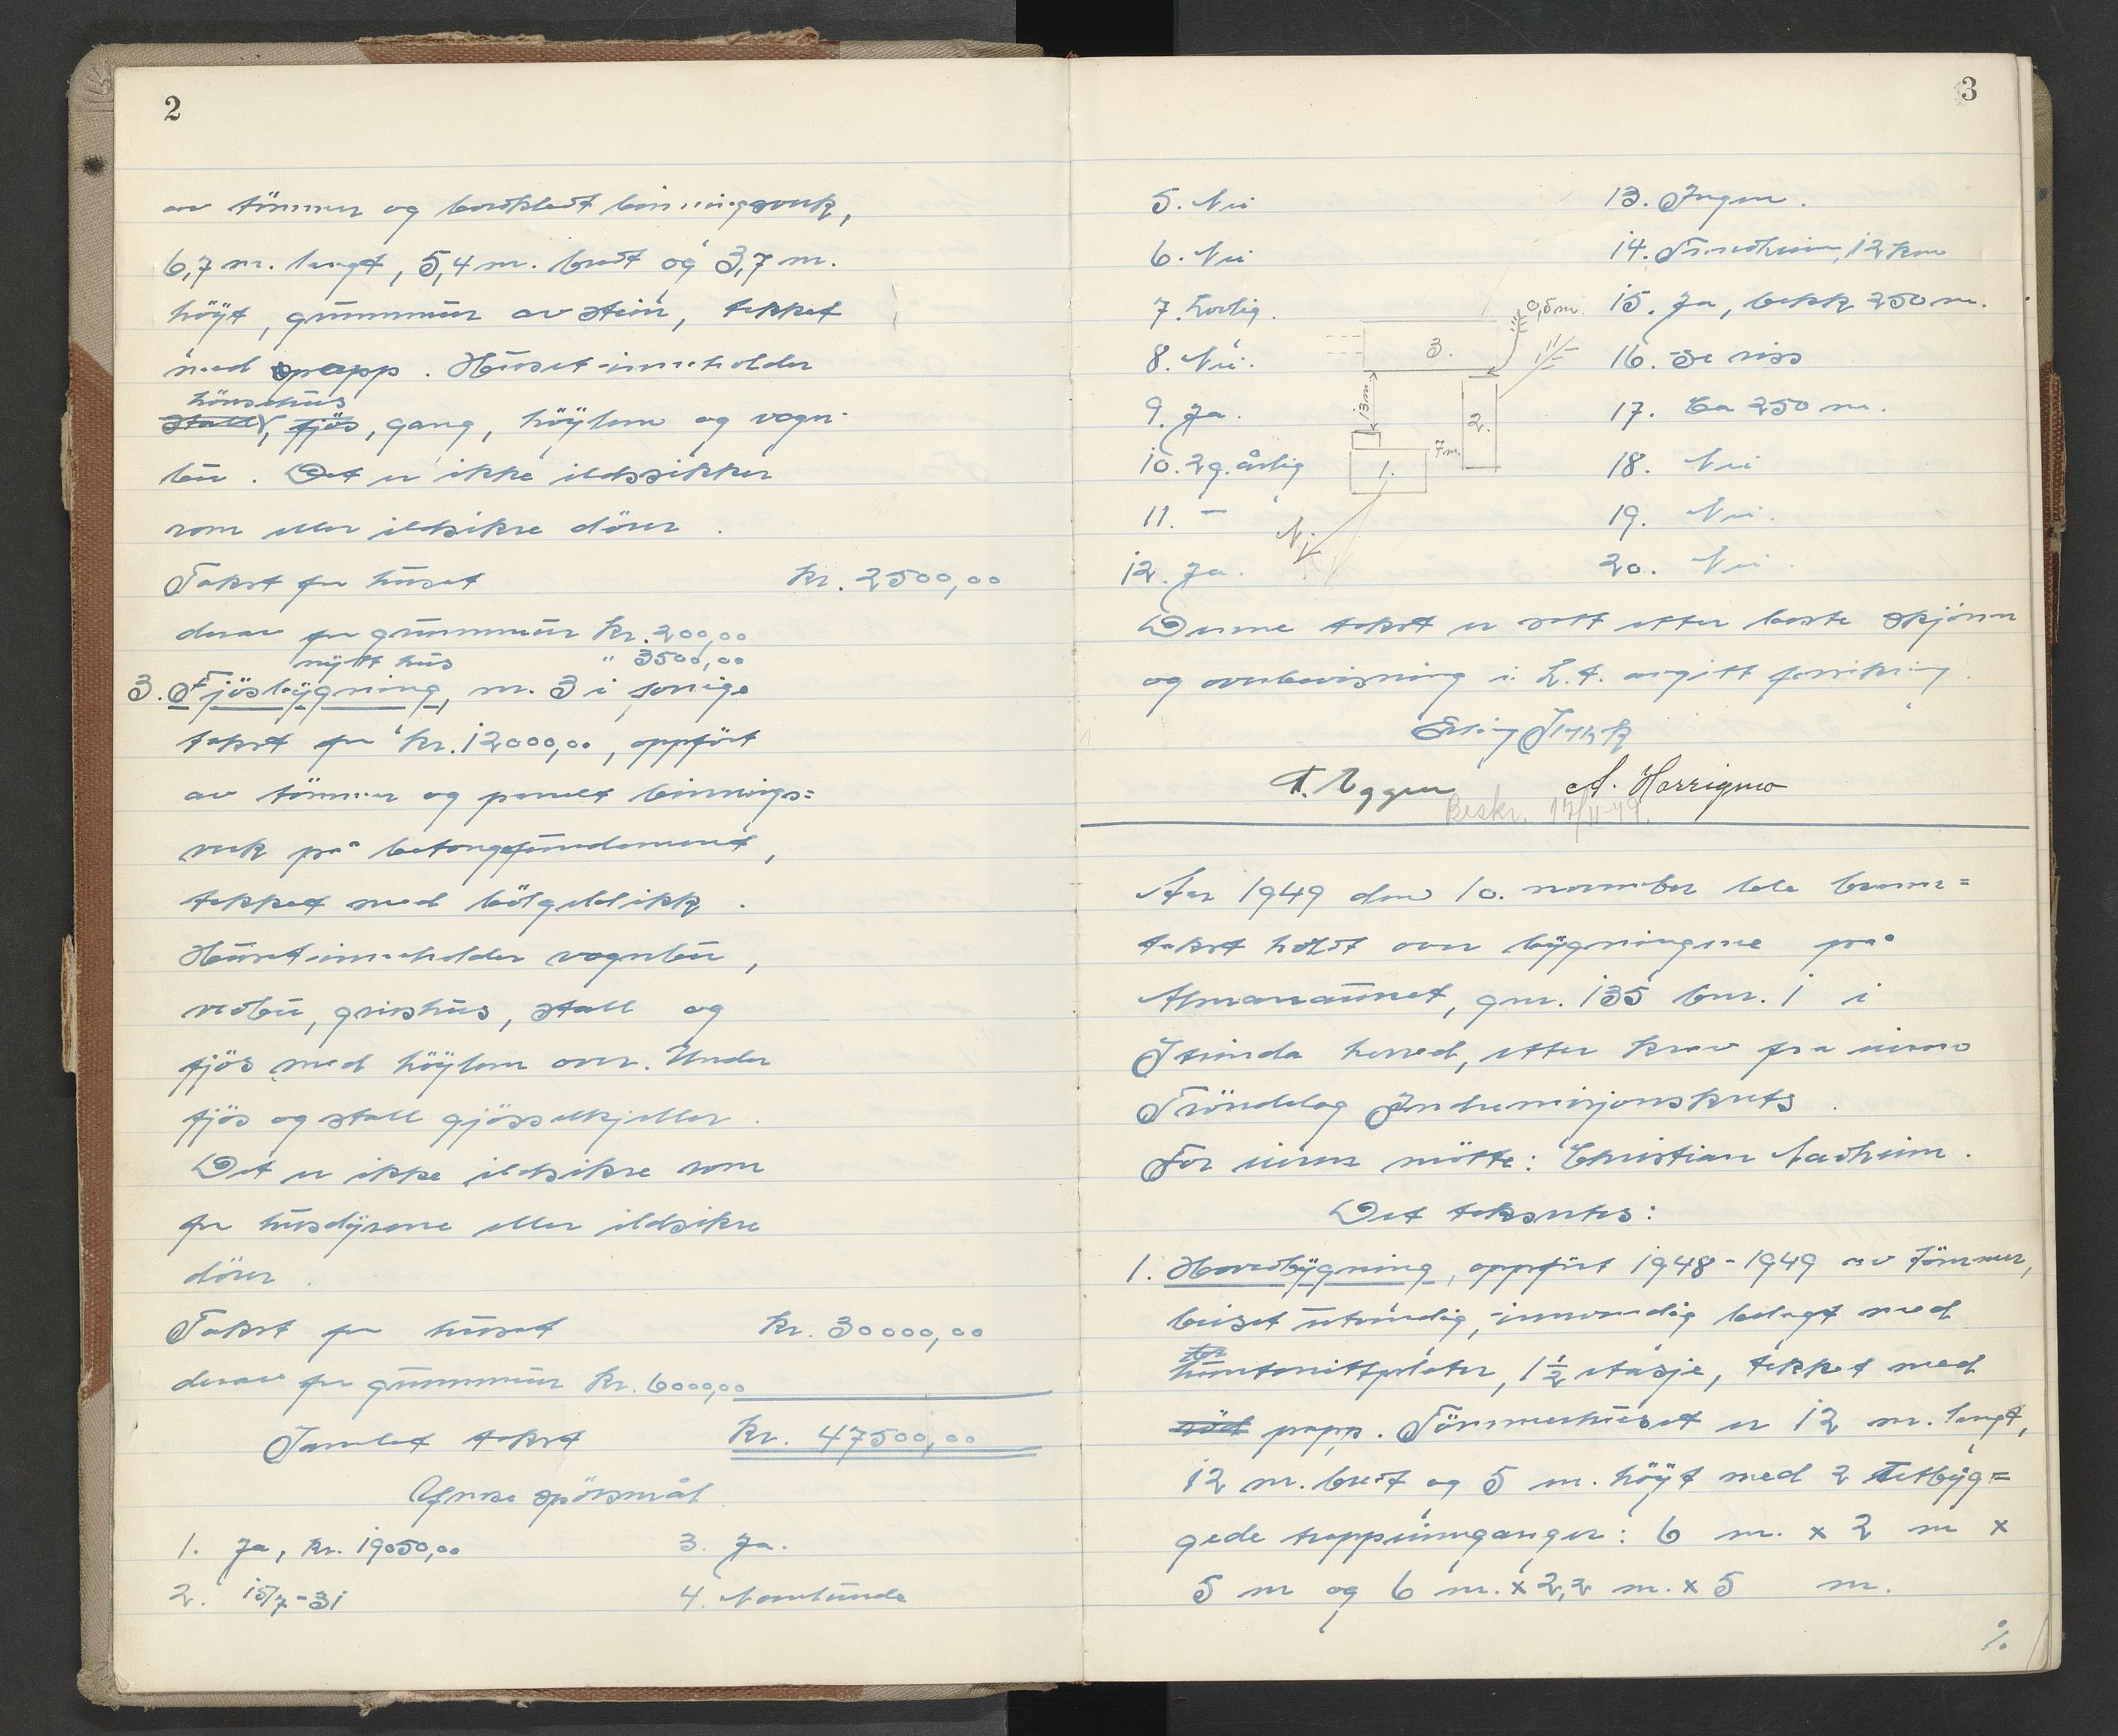 2
av tömmer og bordkledt binningsverk,
6,7 m. langt, 5,4 m. bredt og 3,7 m.
höyt, grunnmur av stein, tekket
med papp. Huset inneholder
hönsehus
stall, fjös, gang, höylem og vogn-
bu. Det er ikke ildssikker
rom eller ildsikre dörer.
Takst for huset kr. 2500,00
derav for grunnmur kr. 200,00
nytt hus " 3500,00
3. Fjösbygning, nr. 3 i forrige
takst for kr. 12000,00, oppfört
av tömmer og panelt binnings=
verk på betongfundament,
tekket med bölgeblikk.
Huset inneholder vognbu,
vedbu, grishus, stall og
fjös med höylem over. Under
fjös og stall gjösselkjeller.
Det er ikke ildsikre rom
for husdyrene eller ildsikre
dörer.
Takst for huset kr. 30000,00
derav for grunnmur kr. 6000,00
Samlet takst kr. 47500,00
Öfrige spörsmål
1. Ja, kr. 19050,00 3. Ja.
2. 15/7-31 4. Navlunde
3
5. Nei
6. Nei
7. Lovlig.
8. Nei.
9. Ja.
10. 2 g. årlig
11. –
12. Ja.
3.
2.
1.
13 m
7 m.
0,5 m.
N.
13. Ingen.
14. Trondheim, 12 km
15. Ja, bekk 250 m.
16. Se riss
17. Ca 250 m.
18. Nei
19. Nei.
20. Nei.
Denne takst er satt etter beste skjönn
og overbevisning i h.t. avgitt forsikring.
Erling
T. Eggen A. Harrigmo
Beskr. 17/11-49.
Aar 1949 den 10. november ble brann=
takst holdt over bygningene på
gnr. 135 bnr. 1 i
Strinda herred, etter krav fra eieren
Tröndelag Indremisjonskrets.
For eieren mötte: Christian
Det taksertes:
1. Hovedbygning, oppfört 1948-1949 av tömmer,
beiset utvendig, innvendig belagt med
huntonittplater, 1½ etasje, tekket med
röd papp. Tömmerhuset er 12 m. langt,
12 m. bredt og 5 m. höyt med 2 tetbyg=
gede trappinnganger: 6 m. x 2 m x
5 m og 6 m. x 2,2 m. x 5 m.
%